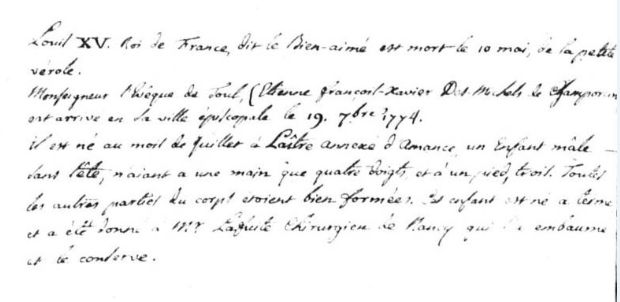 Louis XV. Roi de France, dit le Bien-aimé est mort le 10 mai, de la petite
vérole.
Monseigneur l'Evêque de Toul, (Etienne françois-Xavier Des Michels de Champorcin
est arrivé en sa ville épiscopale le 19. 7bre 1774.
il est né au mois de Juillet à Laître annexe d'Amance, un Enfant mâle
sans tête, n'aiant a une main que quatre doigts et à un pied, trois. Toutes
les autres parties du corps etoient bien formées. Cet enfant est né a terme
et a été donné a Mr. Chirurgien de Nancy qui l'a embaumé
et le conserve.